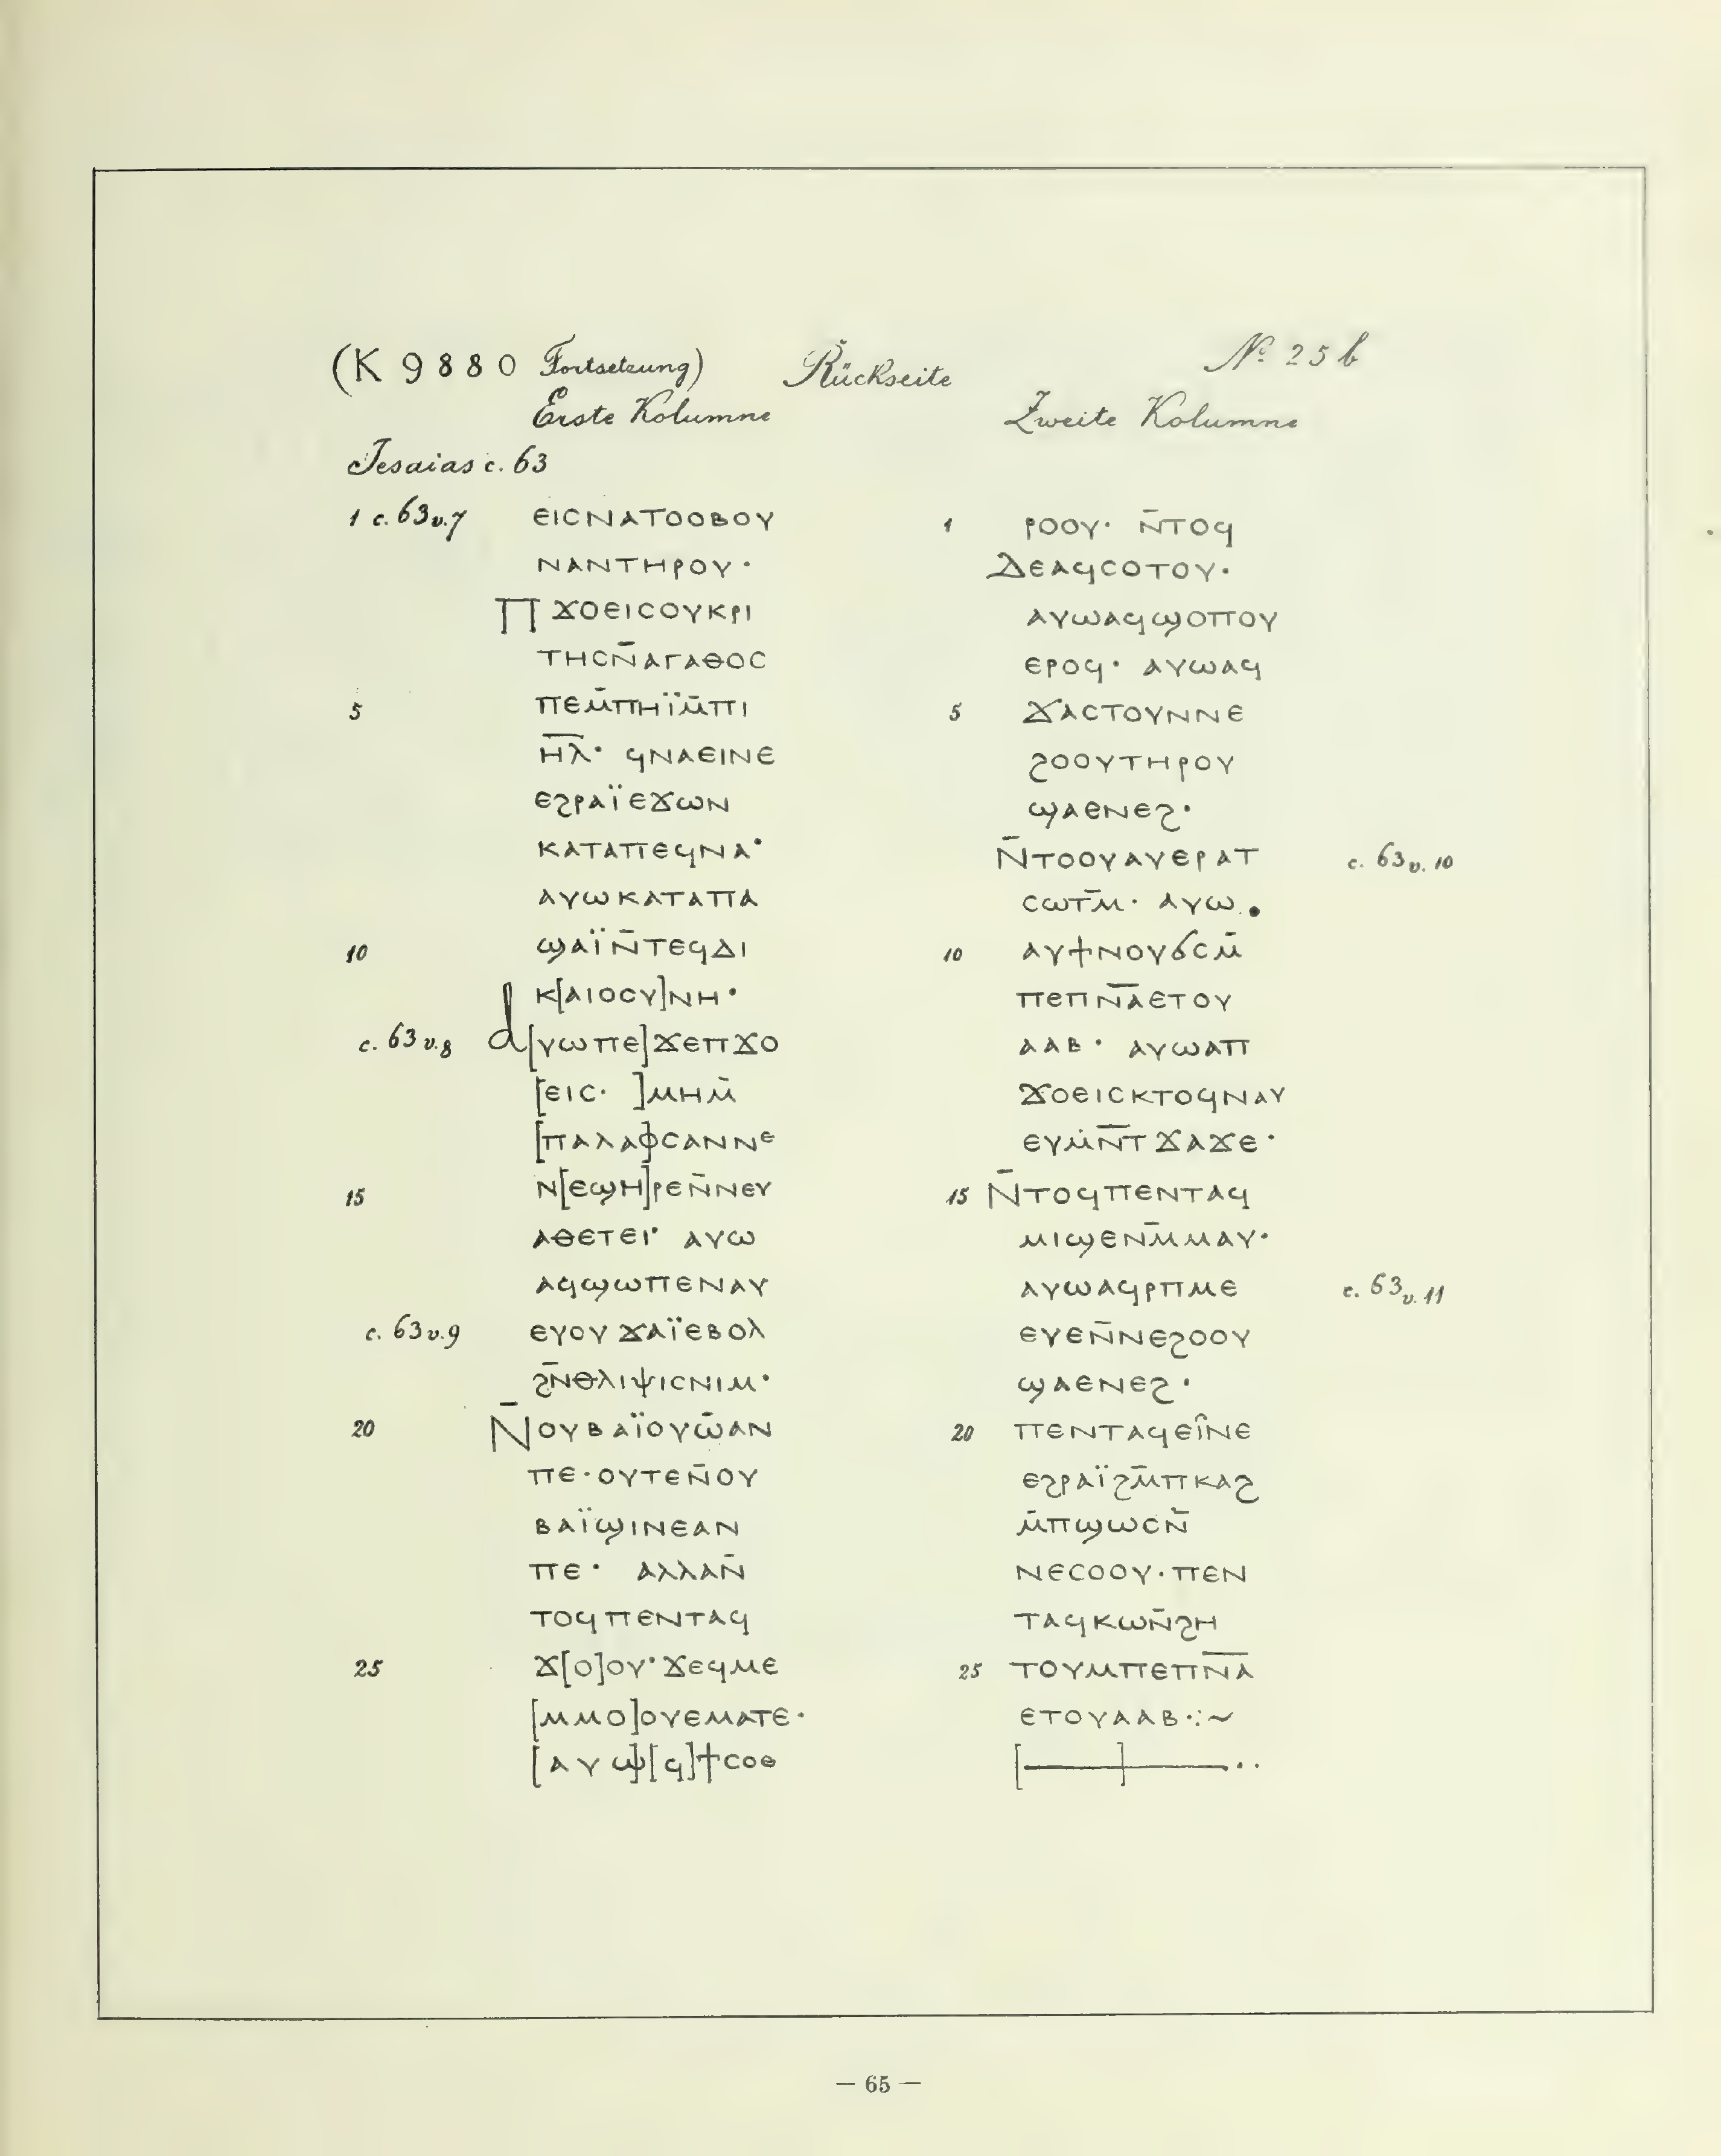 (K 9880 Fortsetzung) Rückseite № 25 b
Erste Kolumne
Jesaias c. 63
1 c. 63 v. 7 ⲉⲓⲥⲛⲁⲧⲟⲟⲃⲟⲩ
ⲛⲁⲛⲧⲏⲣⲟⲩ·
Ⲡϫⲟⲉⲓⲥⲟⲩⲕⲣⲓ
ⲧⲏⲥⲛ̄ⲁⲅⲁⲑⲟⲥ
5 ⲡⲉⲙ̄ⲡⲏⲓ̈ⲙ̄ⲡⲓ
ⲏ̅ⲗ̅· ϥⲛⲁⲉⲓⲛⲉ
ⲉϩⲣⲁⲓ̈ⲉϫⲱⲛ
ⲕⲁⲧⲁⲡⲉϥⲛⲁ·
ⲁⲩⲱⲕⲁⲧⲁⲡⲁ
10 ϣⲁⲓ̈ⲛ̄ⲧⲉϥⲇⲓ
ⲕ[ⲁⲓⲟⲥⲩ]ⲛⲏ·
c. 63 v. 8 ⲁ[ⲩⲱⲡⲉ]ϫⲉⲡϫⲟ
[ⲉⲓⲥ· ]ⲙⲏⲙ̄
[ⲡⲁⲗⲁ]ⲫⲥⲁⲛⲛⲉ
15 ⲛ[ⲉϣⲏ]ⲣⲉⲛ̄ⲛⲉⲩ
ⲁⲑⲉⲧⲉⲓ· ⲁⲩⲱ
ⲁϥϣⲱⲡⲉⲛⲁⲩ
c. 63 v. 9 ⲉⲩⲟⲩϫⲁⲓ̈ⲉⲃⲟⲗ
ϩⲛ̄ⲑⲗⲓⲯⲓⲥⲛⲓⲙ·
20 Ⲛ̄ⲟⲩⲃⲁⲓ̈ⲟⲩⲱ̄ⲁⲛ
ⲡⲉ·ⲟⲩⲧⲉⲛ̄ⲟⲩ
ⲃⲁⲓ̈ϣⲓⲛⲉⲁⲛ
ⲡⲉ· ⲁⲗⲗⲁⲛ̄
ⲧⲟϥⲡⲉⲛⲧⲁϥ
25 ϫ[ⲟ]ⲟⲩ·ϫⲉϥⲙⲉ
[ⲙⲙⲟ]ⲟⲩⲉⲙⲁⲧⲉ·
[ⲁⲩⲱ][ϥ]ϯⲥⲟⲉ
Zweite Kolumne
1 ⲣⲟⲟⲩ· ⲛ̄ⲧⲟϥ
Ⲇⲉⲁϥⲥⲟⲧⲟⲩ·
ⲁⲩⲱⲁϥϣⲟⲡⲟⲩ
ⲉⲣⲟϥ· ⲁⲩⲱⲁϥ
5 ϫⲁⲥⲧⲟⲩⲛⲛⲉ
ϩⲟⲟⲩⲧⲏⲣⲟⲩ
ϣⲁⲉⲛⲉϩ·
Ⲛ̄ⲧⲟⲟⲩⲁⲩⲉⲣⲁⲧ c. 63 v. 10
ⲥⲱⲧⲙ̄· ⲁⲩⲱ.
10 ⲁⲩϯⲛⲟⲩϭⲥⲙ̄
ⲡⲉⲡⲛ̅ⲁ̅ⲉⲧⲟⲩ
ⲁⲁⲃ· ⲁⲩⲱⲁⲡ
ϫⲟⲉⲓⲥⲕⲧⲟϥⲛⲁⲩ
ⲉⲩⲙⲛ̅ⲧϫⲁϫⲉ·
15 Ⲛ̄ⲧⲟϥⲡⲉⲛⲧⲁϥ
ⲙⲓϣⲉⲛⲙ̄ⲙⲁⲩ·
ⲁⲩⲱⲁϥⲣⲡⲙⲉ c. 63 v. 11
ⲉⲩⲉⲛ̄ⲛⲉϩⲟⲟⲩ
ϣⲁⲉⲛⲉϩ·
20 ⲡⲉⲛⲧⲁϥⲉⲓ̂ⲛⲉ
ⲉϩⲣⲁⲓ̈ϩⲙ̄ⲡⲕⲁϩ
ⲙ̄ⲡϣⲱⲥⲛ̄
ⲛⲉⲥⲟⲟⲩ·ⲡⲉⲛ
ⲧⲁϥⲕⲱⲛ̄ϩⲏ
25 ⲧⲟⲩⲙⲡⲉⲡⲛ̅ⲁ̅
ⲉⲧⲟⲩⲁⲁⲃ·:~
— 65 —